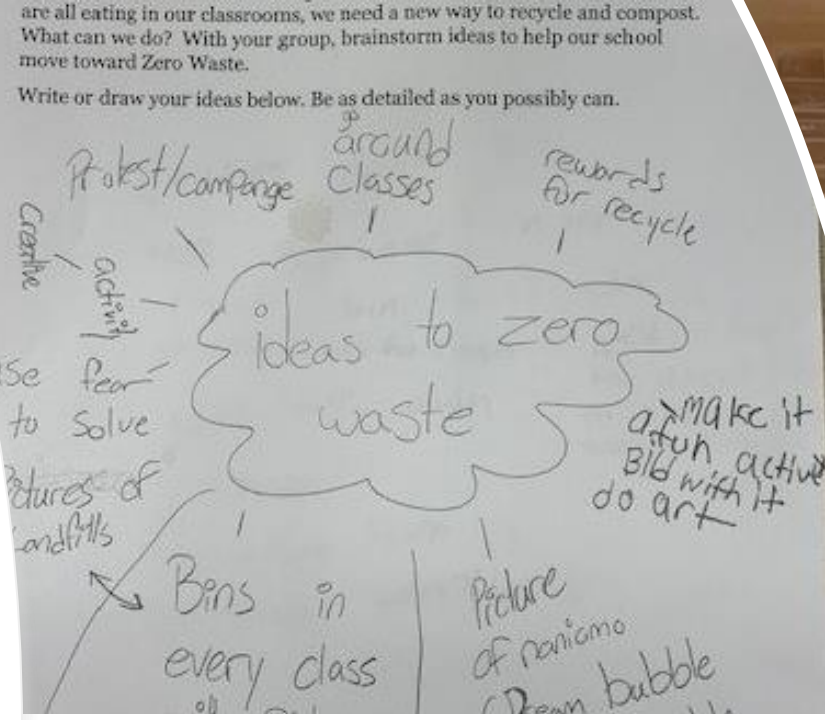 are all eating in our classrooms, we need a new way to recycle and compost.
What can we do? With your group, brainstorm ideas to help our school
move toward Zero Waste.
Write or draw your ideas below. Be as detailed as you possibly can.
Protest/campange
go
around
classes
rewords
for recycle
Creative
activity
ideas to zero
waste
se fear
to solve
ctures of
andfills
make it
a fun activi
Bld with it
do art
Bins in
every class
Picture
of naniamo
bubble